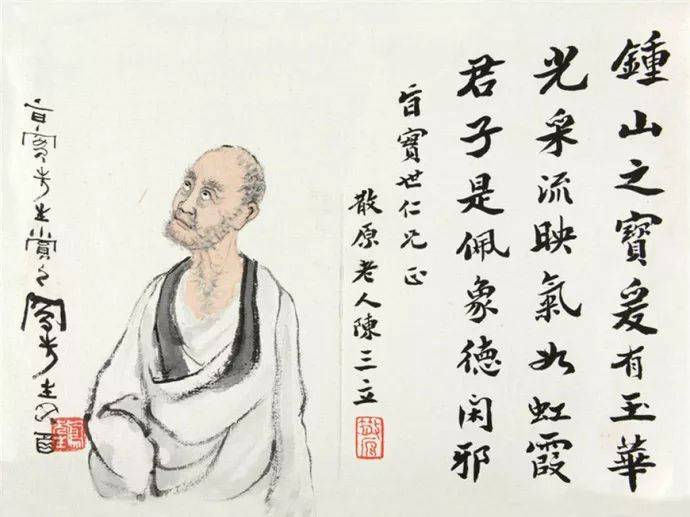 鍾山之寶爰有玉華
光采流映氣如虹霞
君子是佩象德閑邪
旨寶世仁兄正
散原老人陳三立
散原
先生賞之
先生